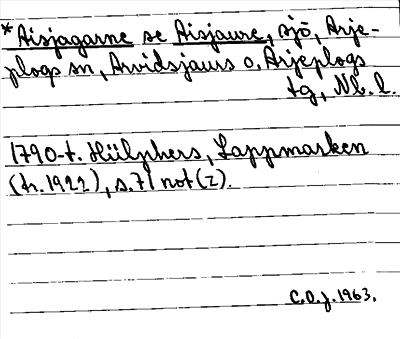 *Aisjagarne se Aisjaure, sjö, Arje-
plogs sn, Arvidsjaurs o. Arjeplogs
tg, Nb. l.
1790-t. Hülphers, Lappmarken
(tr. 1922), s. 71 not (z).
C.O.J. 1963.